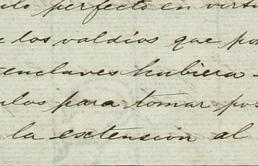 perfecto en virtu
los valdíos que po
enclaves hubiera
los para tomar pos
la extension al